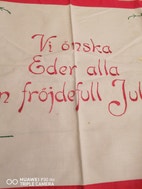 Vi önska
Eder alla
n fröjdefull Jul
HUAWEI P30 LITE
TRIPLE CAMERA